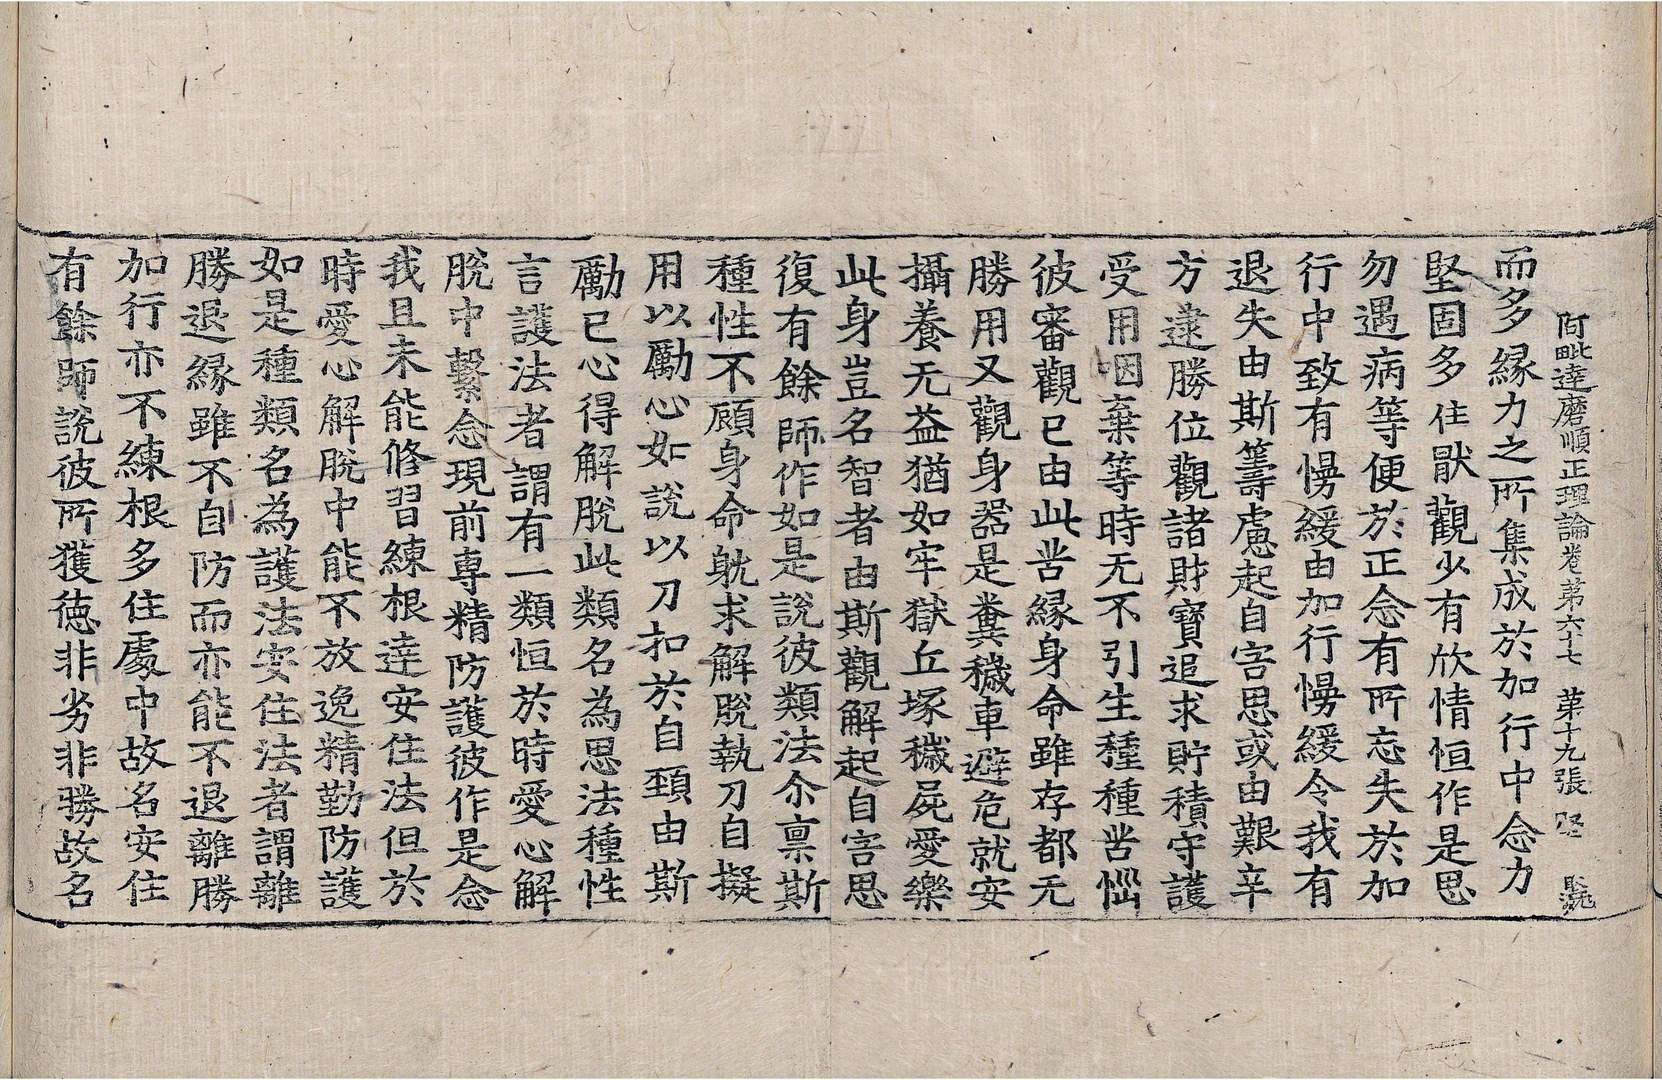 阿毗達磨順正理論卷第六十七 第十九張 堅
而多緣力之所集成於加行中念力
堅固多住猒觀少有欣情恒作是思
勿遇病等便於正念有所忘失於加
行中致有慢緩由加行慢緩令我有
退失由斯籌慮起自害思或由艱辛
方逮勝位觀諸財寶追求貯積守護
受用咽棄等時无不引生種種苦惱
彼審觀已由此苦緣身命雖存都无
勝用又觀身器是糞穢車避危就安
攝養无益猶如牢獄丘塚穢屍愛樂
此身豈名智者由斯觀解起自害思
復有餘師作如是說彼類法尒禀斯
種性不顧身命躭求解脫執刀自擬
用以勵心如說以刀扣於自頚由斯
勵已心得解脫此類名為思法種性
言護法者謂有一類恒於時愛心解
脫中繫念現前專精防護彼作是念
我且未能修習練根達安住法但於
時愛心解脫中能不放逸精勤防護
如是種類名為護法安住法者謂離
勝退緣雖不自防而亦能不退離勝
加行亦不練根多住處中故名安住
有餘師說彼所獲德非劣非勝故名